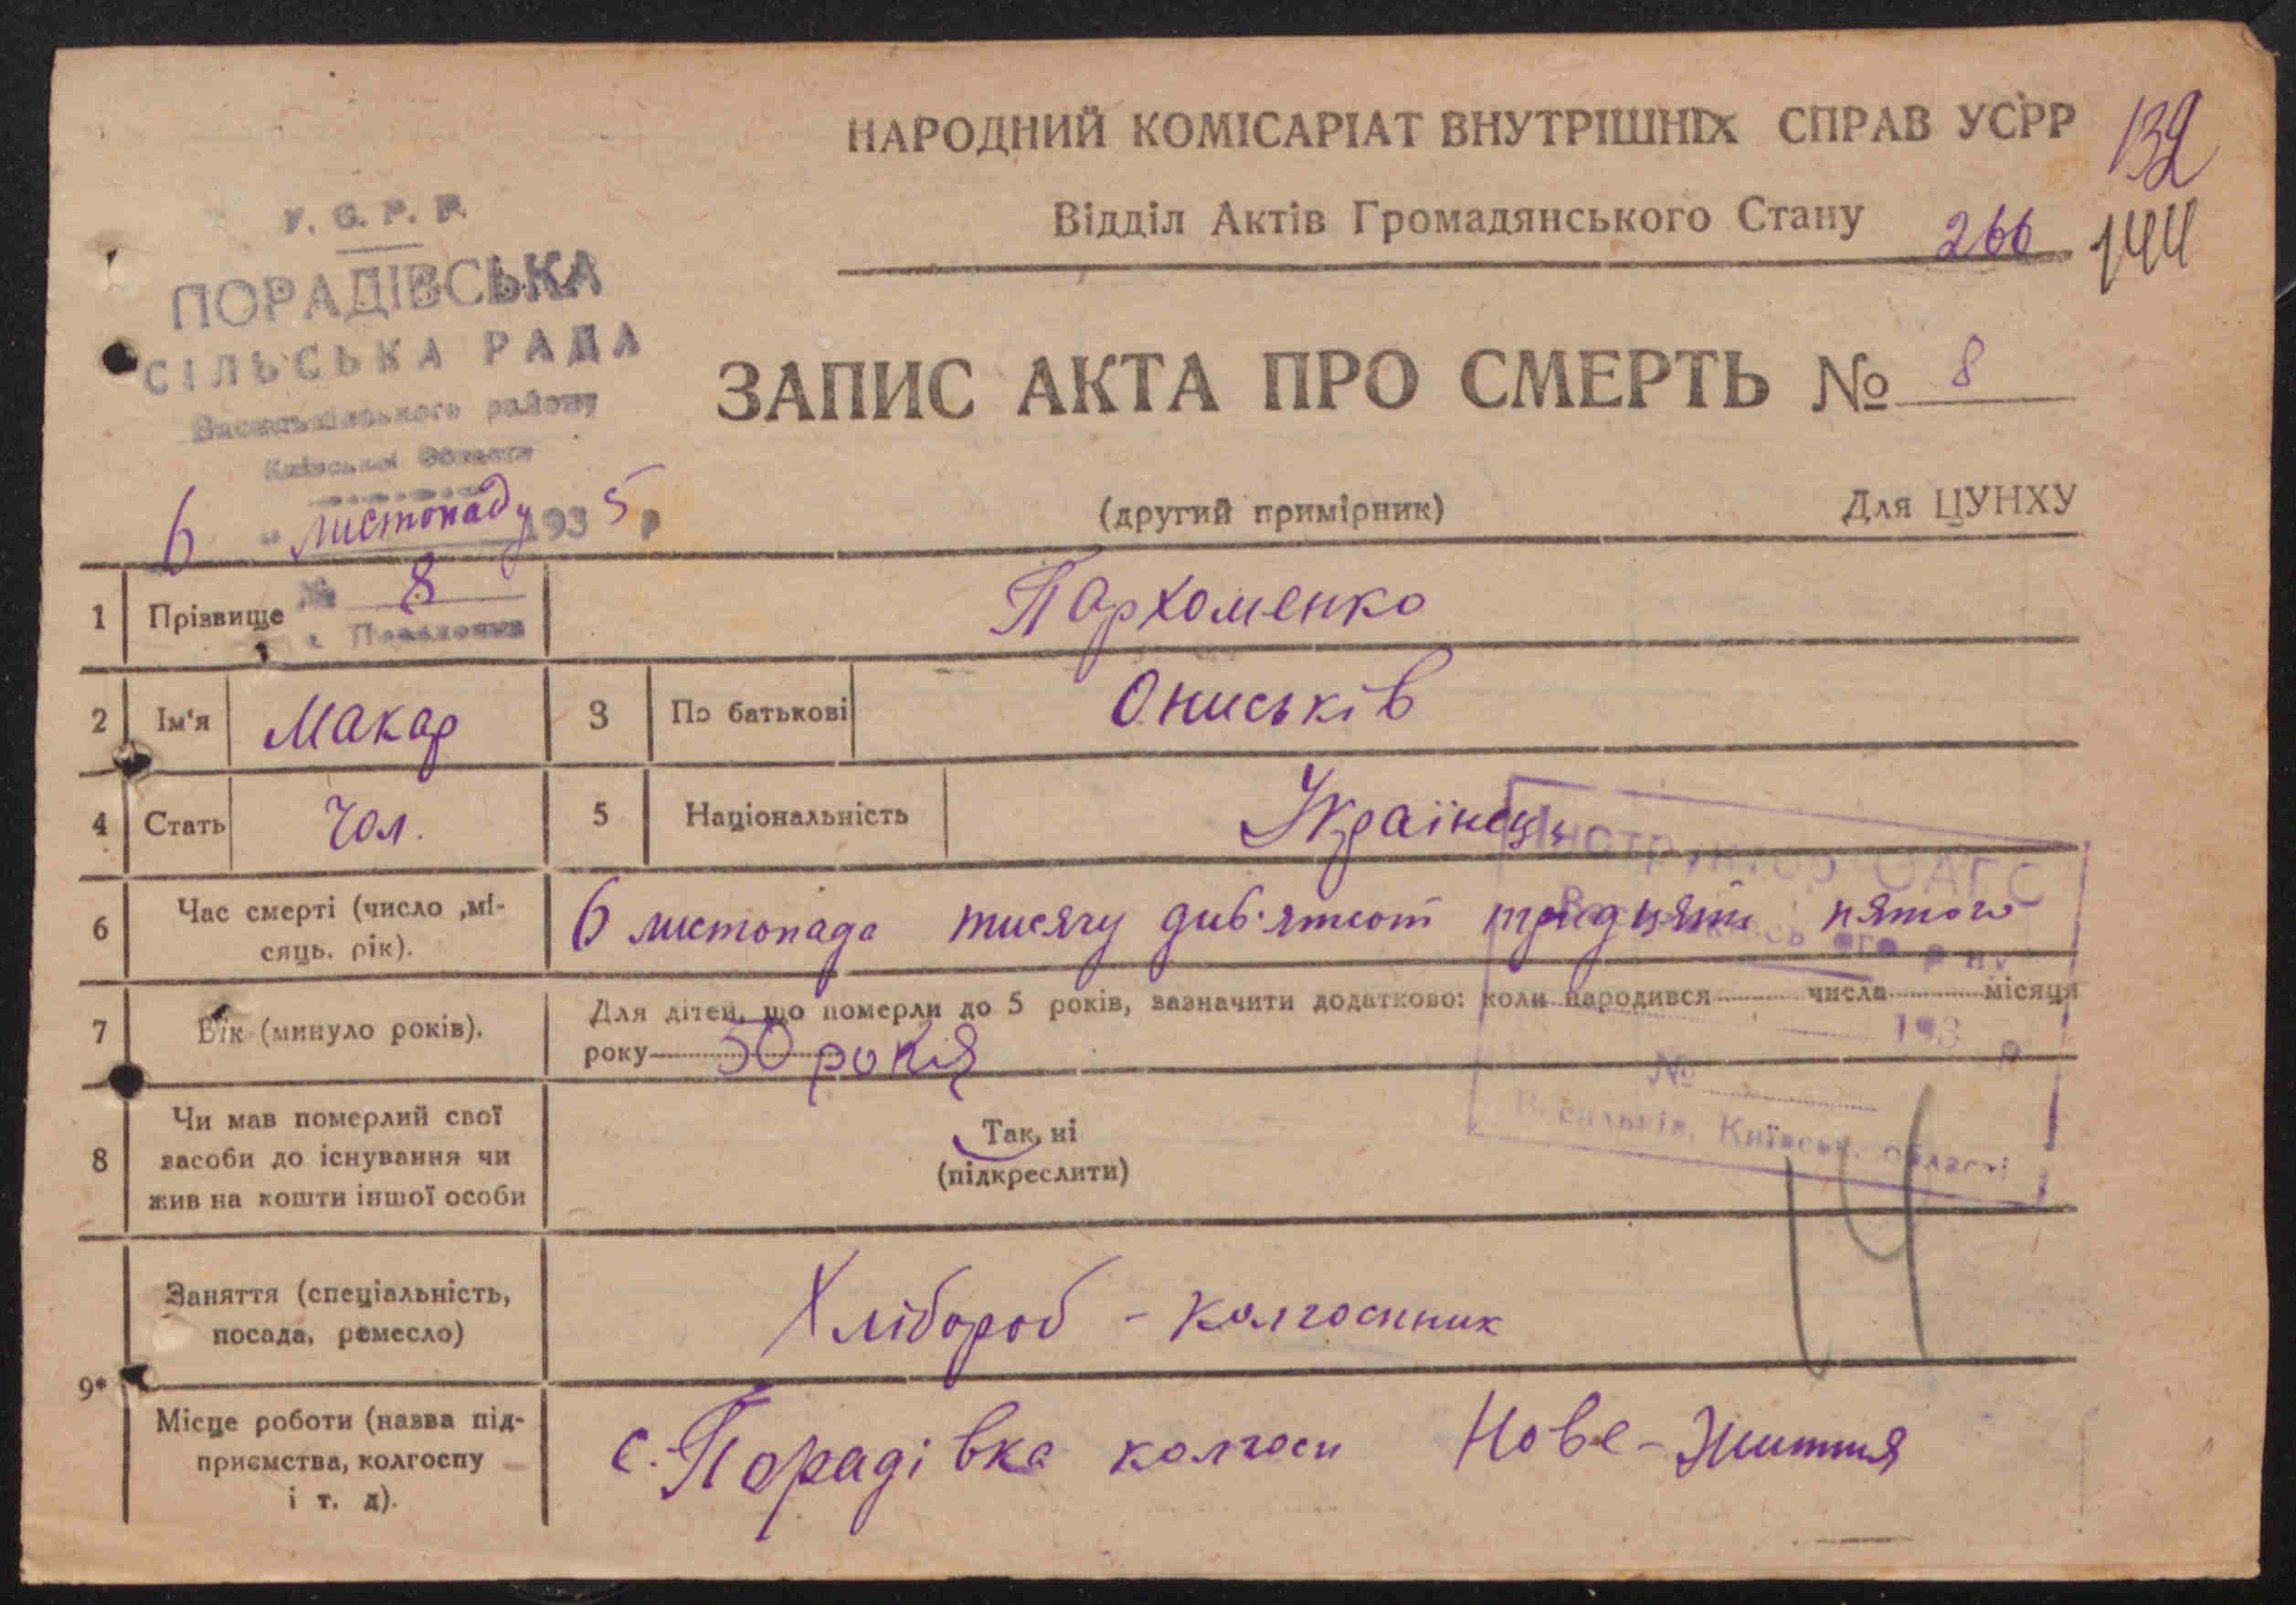 НАРОДНИЙ КОМІСАРІАТ ВНУТРІШНІХ СПРАВ УСРР
132
Відділ Актів Громадянського Стану
266
144
У. С. Р. Р.
ПОРАДІВСЬКА
СІЛЬСЬКА РАДА
Васильківського району
Київської Області
6 " листопаду 1935 р
№ 8
ЗАПИС АКТА ПРО СМЕРТЬ № 8
(другий примірник)
Для ЦУНХУ
1 Прізвище Пархоменко
2 Ім'я Макар 3 По батькові Ониськів
4 Стать Чол. 5 Національність Українець
6 Час смерті (число ,мі-
сяць. рік).
6 листопада тисячу див'ятсот тридцять пятого
7 Вік (минуло років).
Для дітей, що померли до 5 років, зазначити додатково: коли народився числа місяця
року 50 років
8 Чи мав померлий свої
засоби до існування чи
жив на кошти іншої особи
Так, ні
(підкреслити)
Інструктор ЗАГС
193 р
№
Васильків, Київськ. області
14
9*
Заняття (спеціальність,
посада, ремесло)
Хлібороб - колгоспник
Місце роботи (назва під-
приємства, колгоспу
і т. д).
с. Порадівка колгосп Нове-Життя